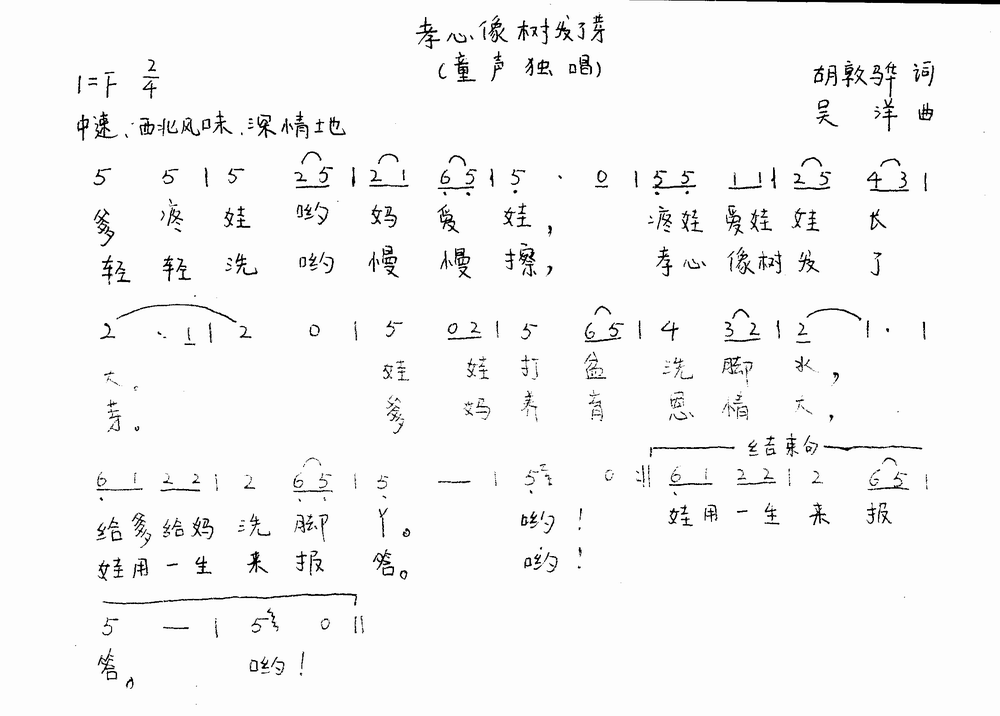 孝心像树发了芽
(童声独唱)
1=F 2/4
胡敦骅 词
中速、西北风味、深情地
吴 洋 曲
5 5 | 5 2 5 | 2 1 6 5 | 5 · 0 | 5 5 1 1 | 2 5 4 3 |
爹 疼 娃 哟 妈 爱 娃， 疼娃 爱娃 娃 长
轻 轻 洗 哟 慢 慢 擦， 孝心 像树 发 了
2 · 1 | 2 0 | 5 0 2 | 5 6 5 | 4 3 2 | 2 1 · |
大。 娃 娃 打 盆 洗 脚 水，
芽。 爹 妈 养 育 恩 情 大，
结束句
6 1 2 2 | 2 6 5 | 5 — | 5 0 :|| 6 1 2 2 | 2 6 5 |
给爹给妈 洗 脚 丫。 哟！ 娃用一生 来 报
娃用一生 来 报 答。 哟！
5 — | 5 0 ||
答。 哟！